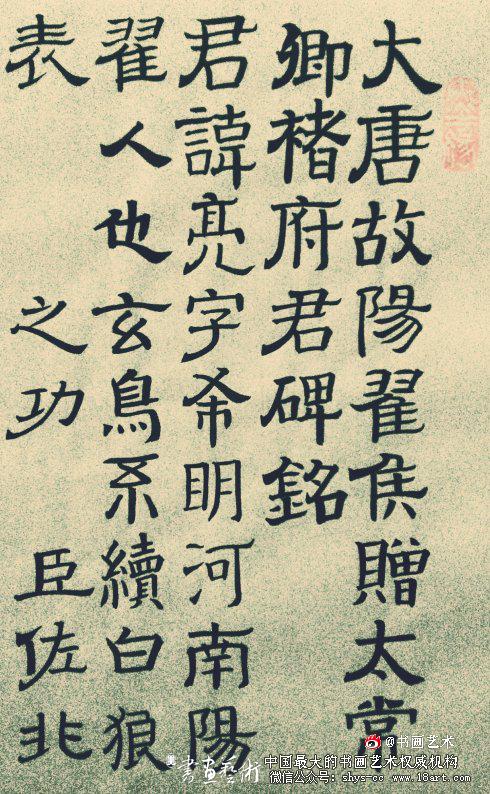 大唐故陽翟侯贈太常
卿褚府君碑銘
君諱亮字希明河南陽
翟人也玄鳥系續白狼
表 之功 臣佐北
@书画艺术
書画藝術
中国最大的书画艺术权威机构
微信公众号：shys-cc www.18art.com